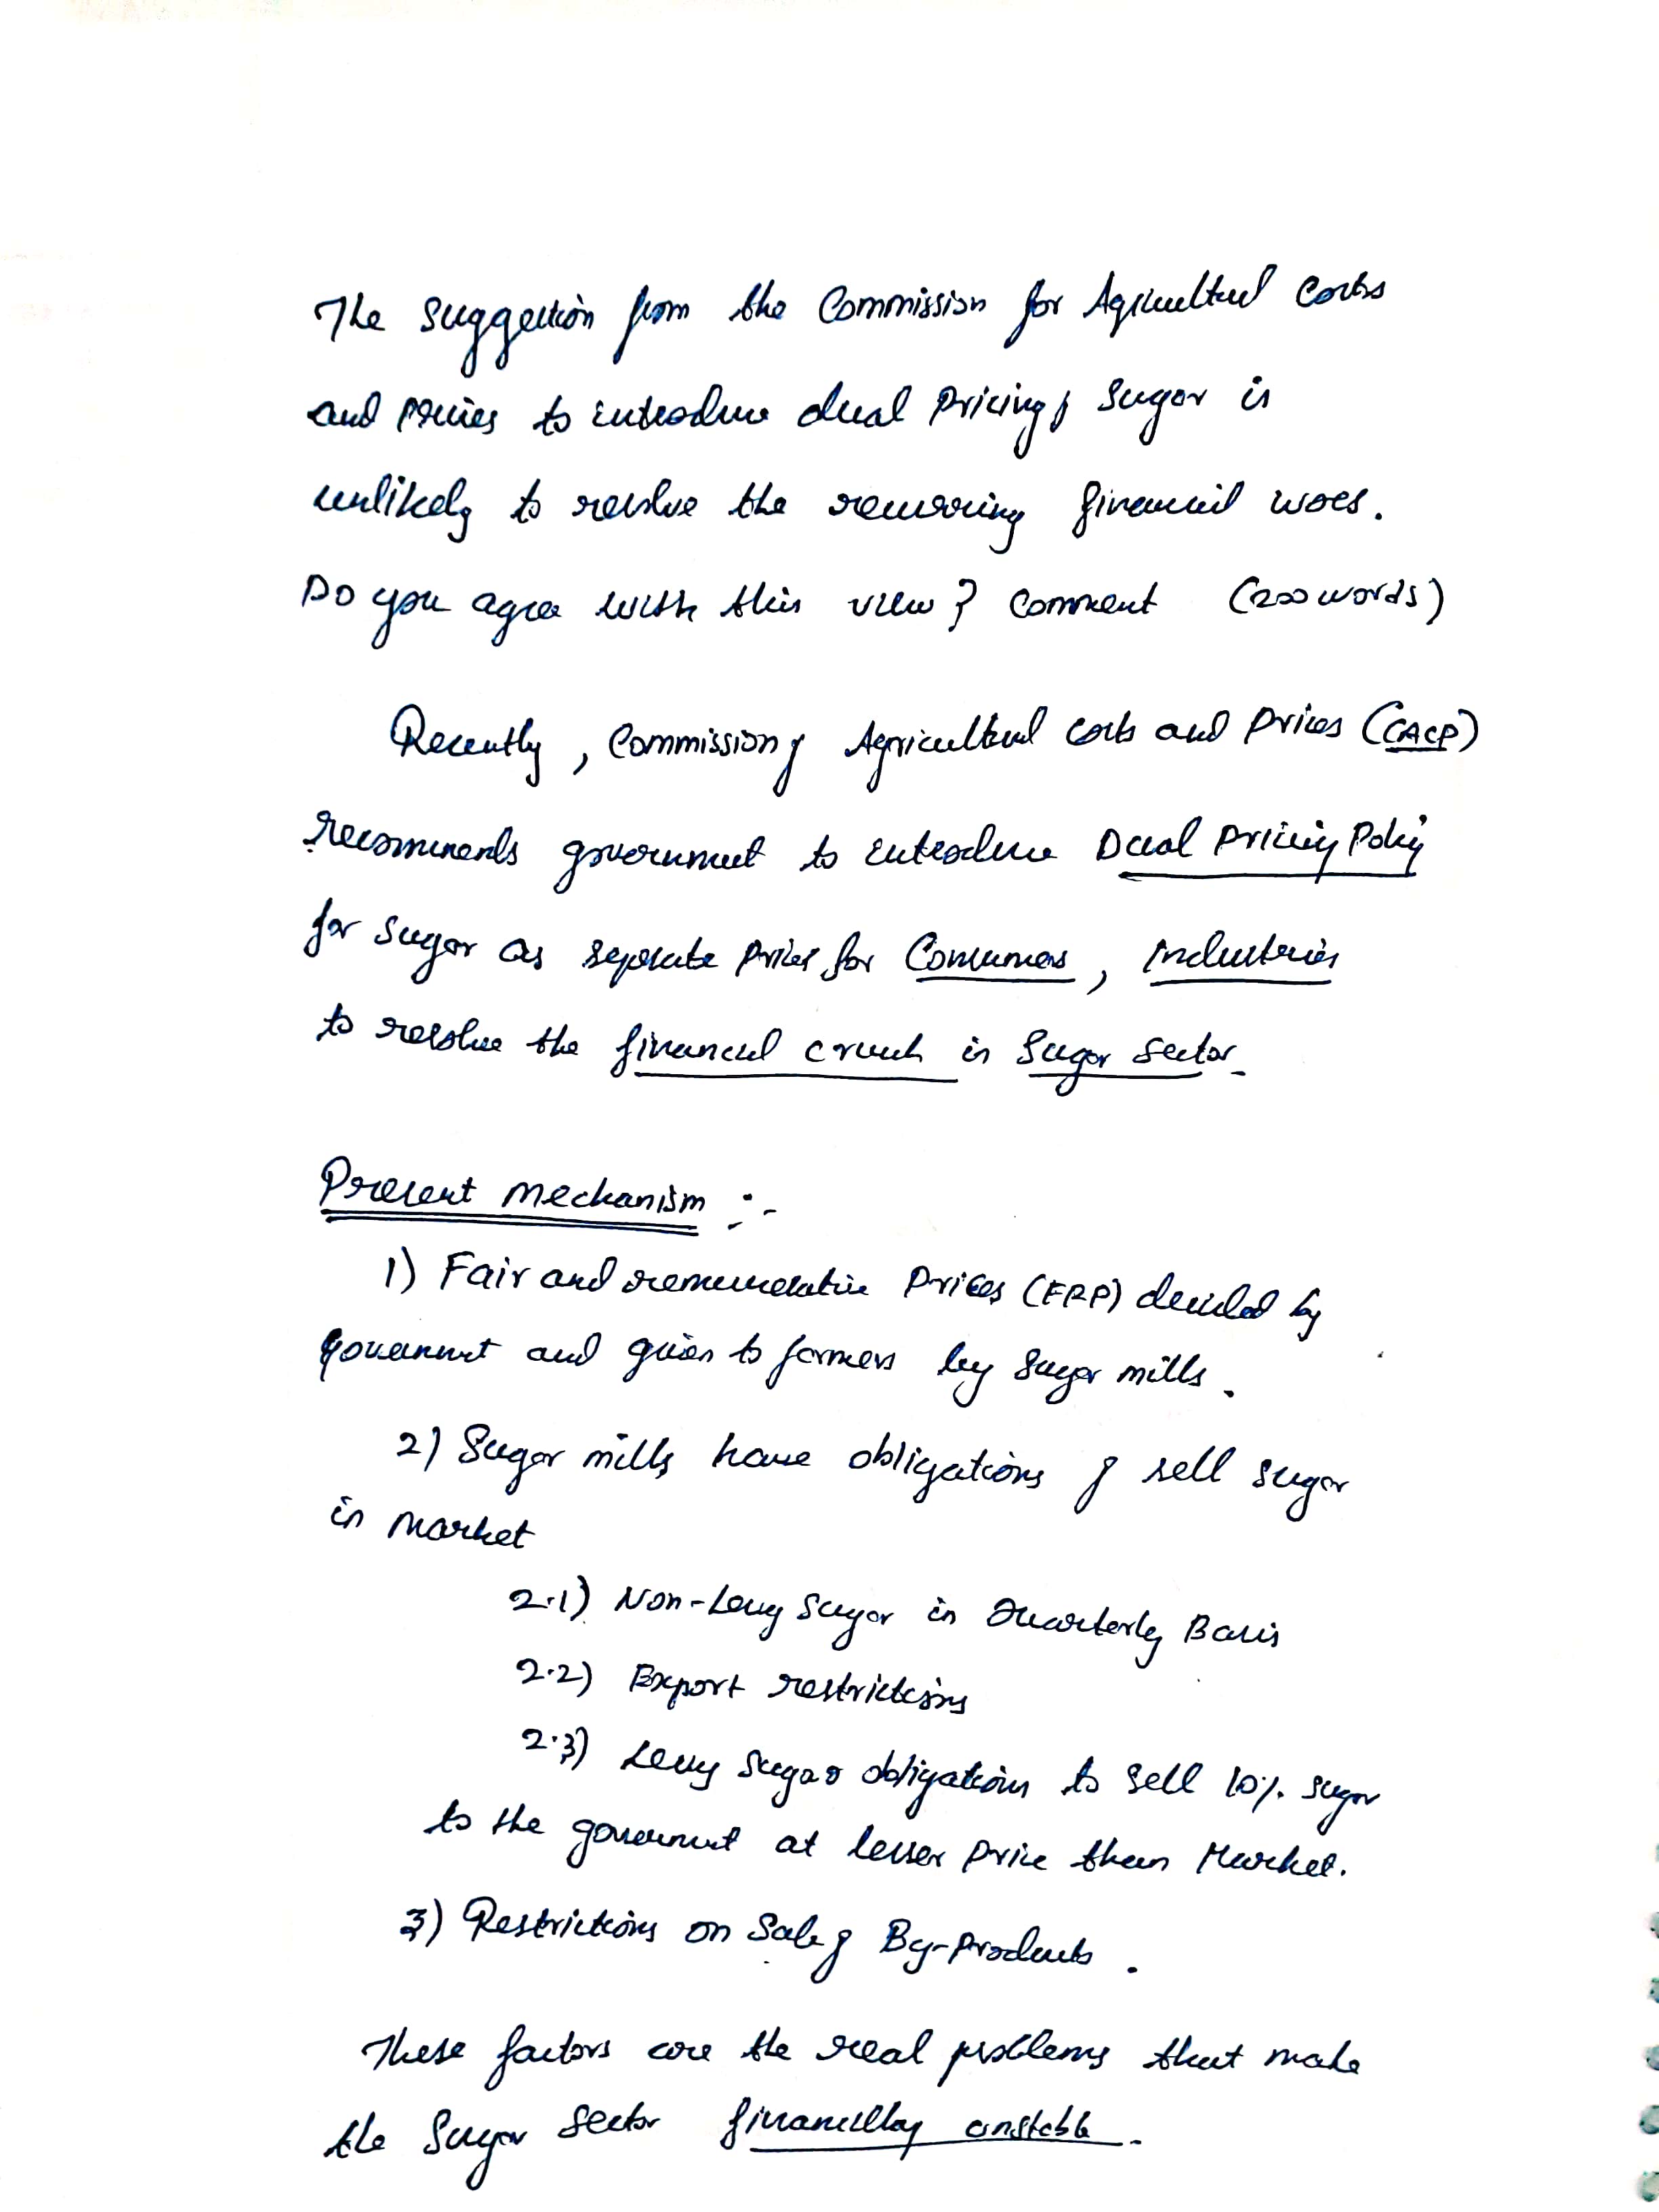 The suggestion from the Commission for Agricultural Costs
and Prices to introduce dual pricing of sugar is
unlikely to resolve the recurring financial woes.
Do you agree with this view? Comment (200 words)
Recently, Commission of Agricultural costs and Prices (CACP)
recommends government to introduce Dual Pricing Policy
for sugar as separate prices for Consumers, Industries
to resolve the financial crunch in Sugar sector.
Present Mechanism :-
1) Fair and remunerative Prices (FRP) decided by
government and given to farmers by sugar mills.
2) Sugar mills have obligations of sell sugar
in market
2.1) Non-Levy sugar in Quarterly Basis
2.2) Export restrictions
2.3) Levy sugar obligations to sell 10% sugar
to the government at lesser price than Market.
3) Restrictions on Sale of By-products.
These factors are the real problems that make
the Sugar sector financially unstable.